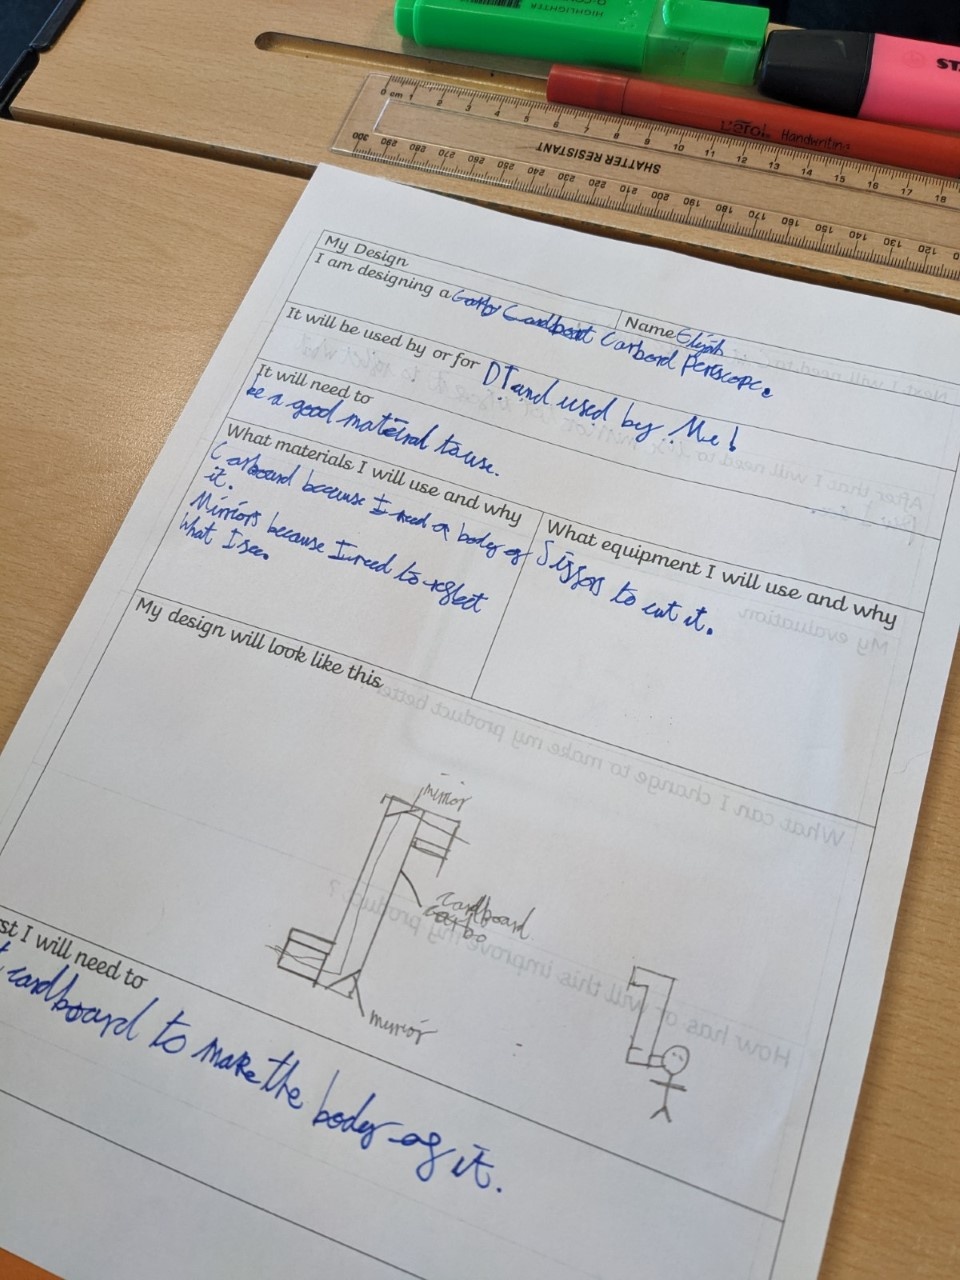 HIGHLIGHTER
0 cm 1 2 3 4 5 6 7 8 9 10 11 12 13 14 15 16 17 18
SHATTER RESISTANT
300 290 280 270 260 250 240 230 220 210 200 190 180 170 160 150 140 130 120
Handwriting
My Design
Name Elijah
I am designing a Cardboart Carbord Periscope.
It will be used by or for DT and used by Me!
It will need to
be a good material to use.
What materials I will use and why
Carboard because I need a body of
it.
Mirriors because I need to reflect
what I see.
What equipment I will use and why
Sissors to cut it.
My design will look like this
mirror
cardboard
carbo
mirror
I will need to
cardboard to make the body of it.
My evaluation
What can I change to make my product better
How has or will this improve my product?